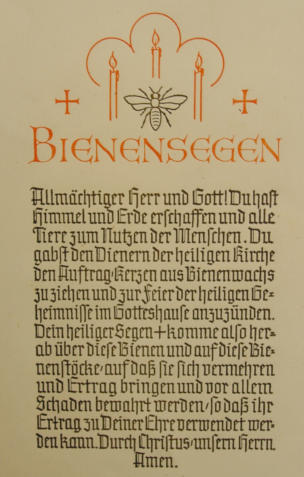 BIENENSEGEN
Allmächtiger Herr und Gott! Du hast
Himmel und Erde erschaffen und alle
Tiere zum Nutzen der Menschen. Du
gabst den Dienern der heiligen Kirche
den Auftrag, Kerzen aus Bienenwachs
zu ziehen und zur Feier der heiligen Ge-
heimnisse im Gotteshause anzuzünden.
Dein heiliger Segen + komme also her-
ab über diese Bienen und auf diese Bie-
nenstöcke, auf daß sie sich vermehren
und Ertrag bringen und vor allem
Schaden bewahrt werden, so daß ihr
Ertrag zu Deiner Ehre verwendet wer-
den kann. Durch Christus, unsern Herrn
Amen.